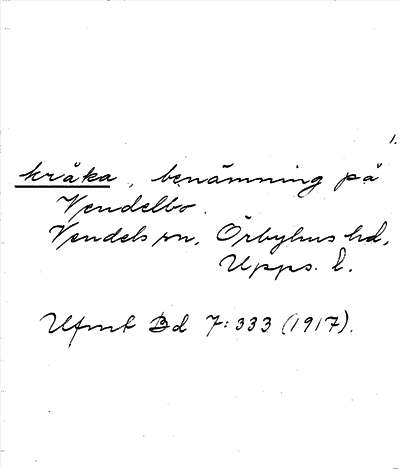 1.
kråka, benämning på
Vendelbo.
Vendels sn, Örbyhus hd,
Upps. l.
Ufmt Bd 7:333 (1917).